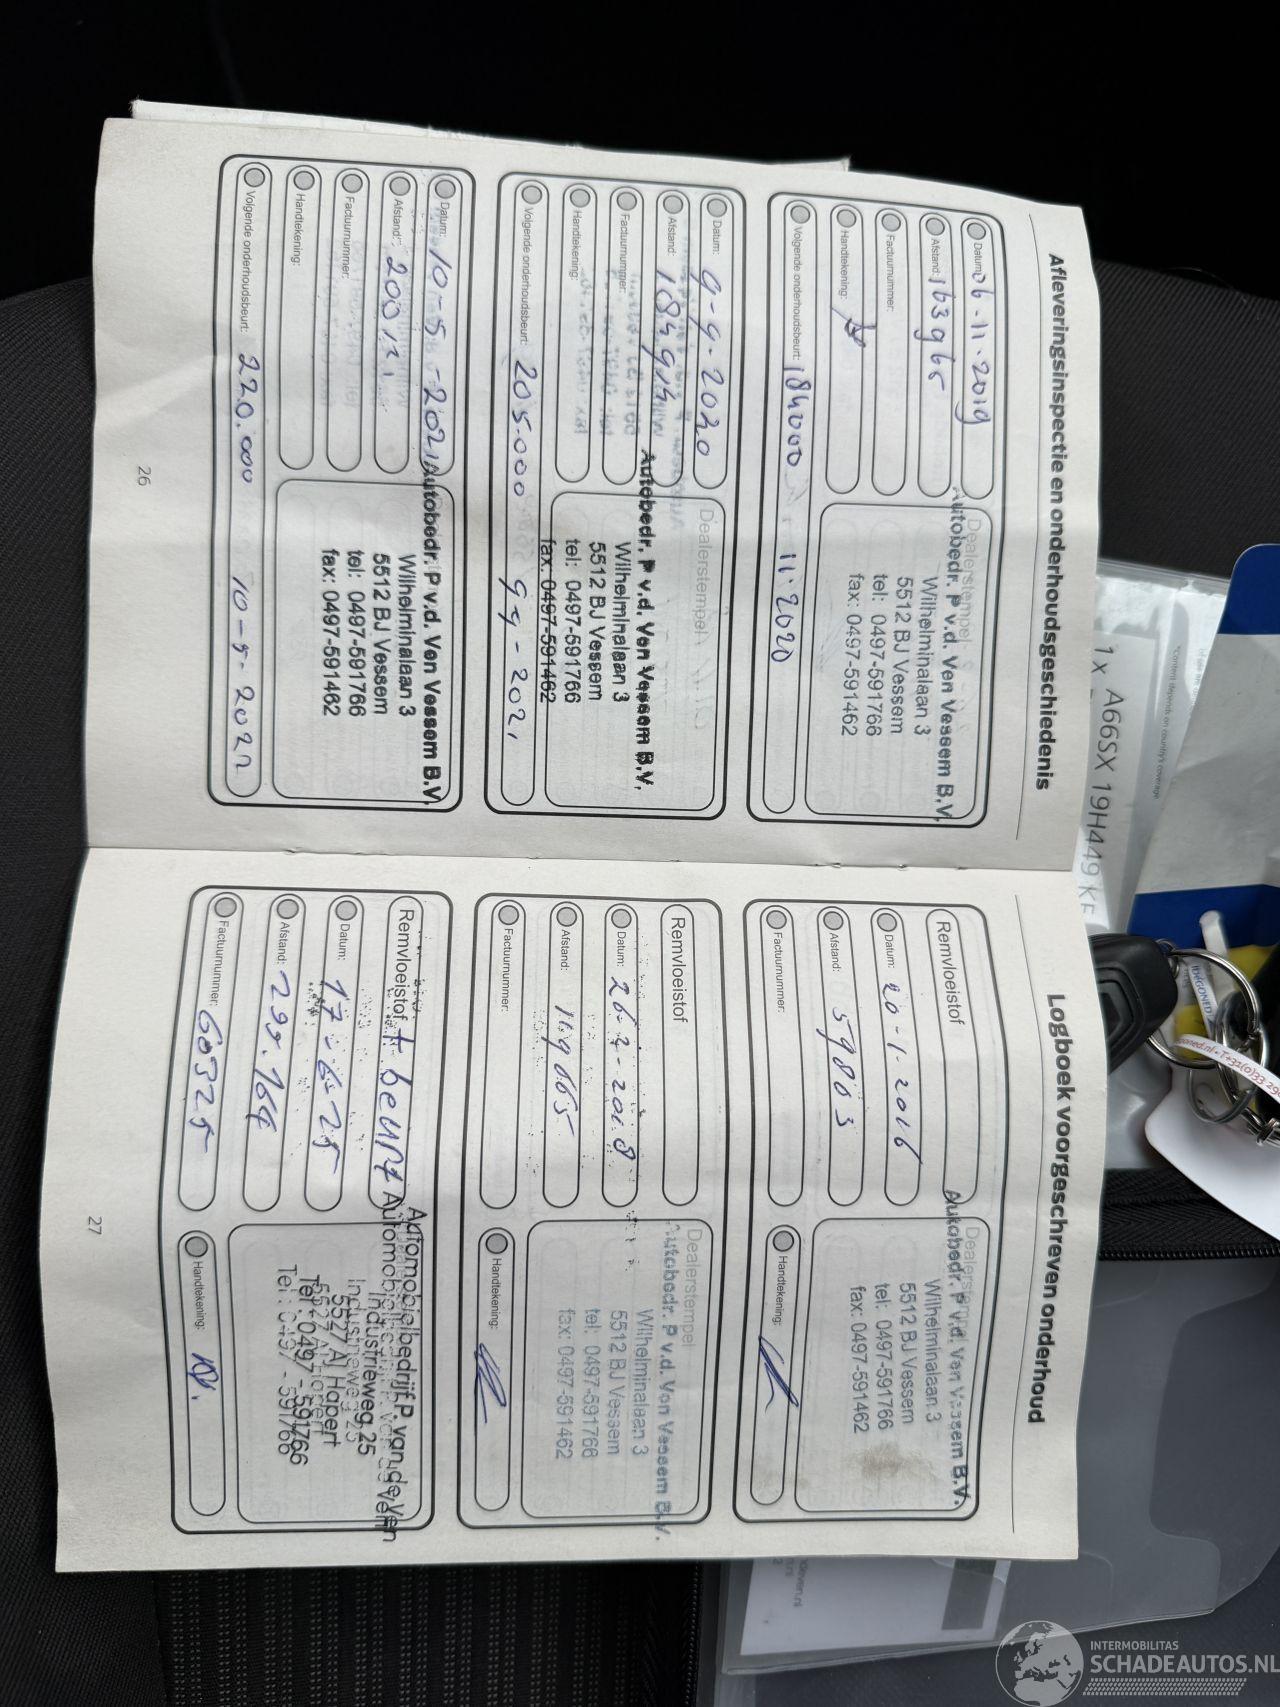 Afleveringsinspectie en onderhoudsgeschiedenis
Datum: 06-11-2019
Afstand: 163965
Factuurnummer:
Handtekening:
Volgende onderhoudsbeurt: 184000 11-2020
Dealerstempel
Autobedr. P v.d. Ven Vessem B.V.
Wilhelminalaan 3
5512 BJ Vessem
tel: 0497-591766
fax: 0497-591462
Datum: 9-9-2020
Afstand:
Factuurnummer:
Handtekening:
Volgende onderhoudsbeurt: 205.000 9-9-2021
Dealerstempel
Autobedr. P v.d. Ven Vessem B.V.
Wilhelminalaan 3
5512 BJ Vessem
tel: 0497-591766
fax: 0497-591462
Datum: 10-5-2021
Afstand:
Factuurnummer:
Handtekening:
Volgende onderhoudsbeurt: 220.000 10-5-2022
Autobedr. P v.d. Ven Vessem B.V.
Wilhelminalaan 3
5512 BJ Vessem
tel: 0497-591766
fax: 0497-591462
26
Logboek voorgeschreven onderhoud
Remvloeistof
Datum: 20-1-2016
Afstand: 59803
Factuurnummer:
Dealerstempel
Autobedr. P v.d. Ven Vessem B.V.
Wilhelminalaan 3
5512 BJ Vessem
tel: 0497-591766
fax: 0497-591462
Handtekening:
Remvloeistof
Datum: 26-3-2018
Afstand: 119665
Factuurnummer:
Dealerstempel
Autobedr. P v.d. Ven Vessem B.V.
Wilhelminalaan 3
5512 BJ Vessem
tel: 0497-591766
fax: 0497-591462
Handtekening:
Remvloeistof + beurt
Datum: 17-6-25
Afstand: 299.164
Factuurnummer: 60325
Automobielbedrijf P. van de Ven
Industrieweg 25
5527 AJ Hapert
Tel.: 0497 - 591766
Handtekening:
27
1x A66SX 19H449 KE
*Content depends on country's coverage
INTERMOBILITAS
SCHADEAUTOS.NL